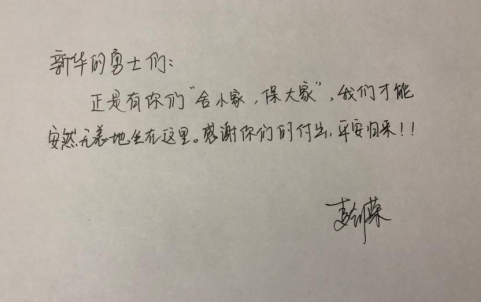 新华的勇士们：
正是有你们“舍小家，保大家”，我们才能
安然无恙地坐在这里。感谢你们的付出，平安归来！！